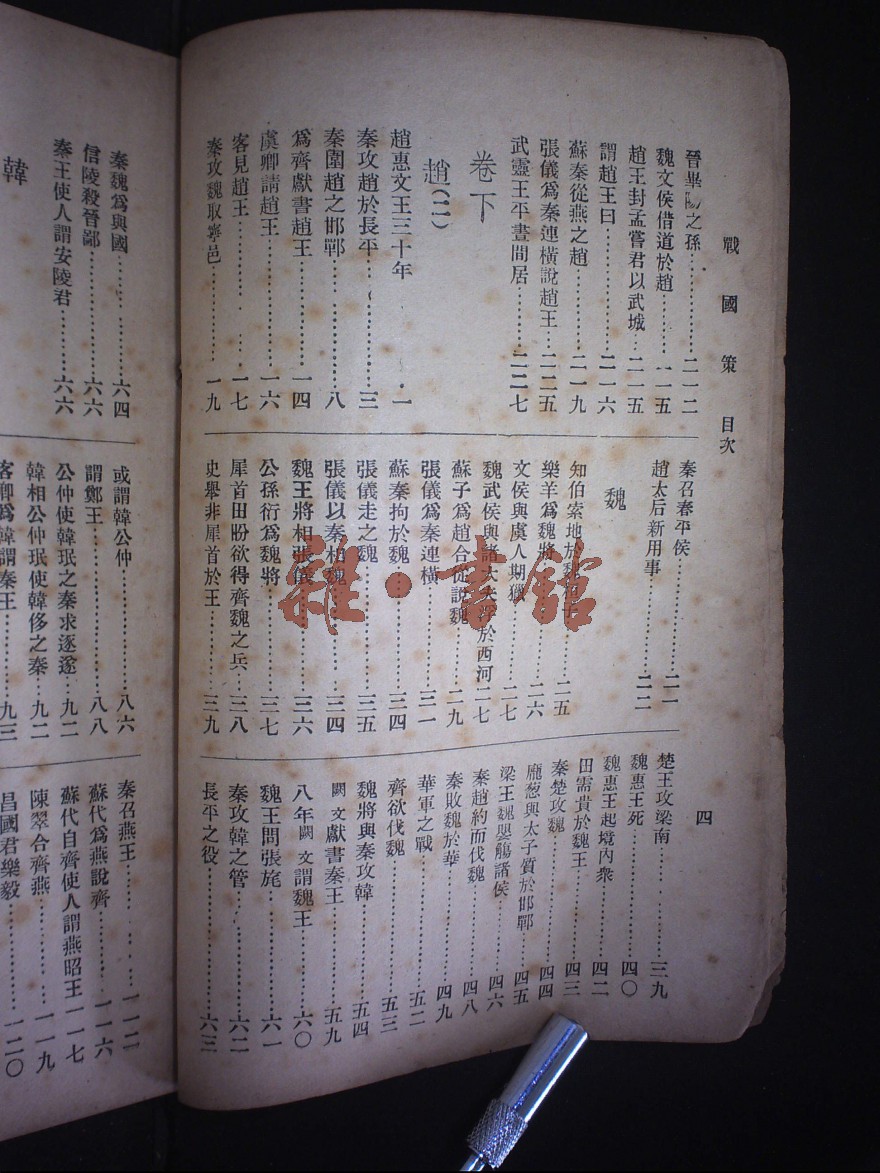 戰國策 目次
四
晉畢陽之孫…………二一二
魏文侯借道於趙……二一五
趙王封孟嘗君以武城…二一五
謂趙王曰…………二一六
蘇秦從燕之趙………二一九
張儀爲秦連橫說趙王…二二五
武靈王平晝間居……二二七
卷下
趙(二)
趙惠文王三十年……一
秦攻趙於長平………三
秦圍趙之邯鄲………八
爲齊獻書趙王………一四
虞卿請趙王…………一六
客見趙王……………一七
秦攻魏取寧邑………一九
秦召春平侯…………二一
趙太后新用事………二二
魏
知伯索地於魏……二五
樂羊爲魏將…………二六
文侯與虞人期獵……二七
魏武侯與諸大夫浮於西河…二七
蘇子爲趙合從說魏…二九
張儀爲秦連橫………三一
蘇秦拘於魏…………三四
張儀走之魏…………三五
張儀以秦相魏………三四
魏王將相張儀………三六
公孫衍爲魏將………三七
犀首田盼欲得齊魏之兵…三八
史舉非犀首於王……三九
楚王攻梁南…………三九
魏惠王死……………四〇
魏惠王起境內衆……四二
田需貴於魏王………四三
秦楚攻魏……………四四
龐葱與太子質於邯鄲…四五
梁王魏嬰觴諸侯……四六
秦趙約而伐魏………四八
秦敗魏於華…………四九
華軍之戰……………五二
齊欲伐魏……………五三
魏將與秦攻韓………五四
闕文獻書秦王………五九
八年闕文謂魏王……六〇
魏王問張旄…………六一
秦攻韓之管…………六二
長平之役……………六三
秦魏爲與國…………六四
信陵殺晉鄙…………六六
秦王使人謂安陵君…六六
韓
或謂韓公仲…………八六
謂鄭王………………八八
公仲使韓珉之秦求逐邃…九二
韓相公仲珉使韓侈之秦…九二
客卿爲韓謂秦王……九三
秦召燕王……………一一二
蘇代爲燕說齊………一一六
蘇代自齊使人謂燕昭王…一一七
陳翠合齊燕…………一一九
昌國君樂毅…………一二〇